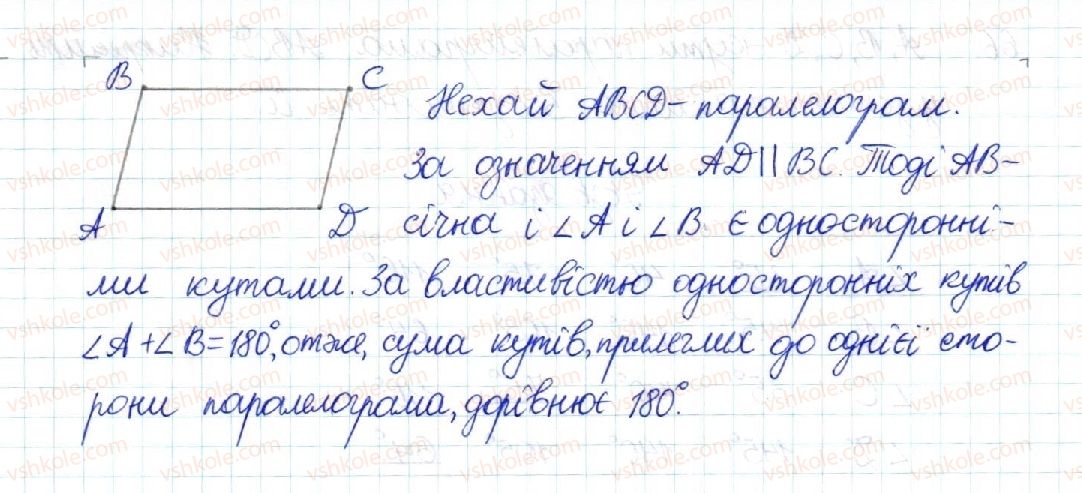 B C
Нехай ABCD - паралелограм.
За означенням AD || BC. Тоді AB -
A D січна і ∠A і ∠B є односторонні-
ми кутами. За властивістю односторонніх кутів
∠A + ∠B = 180°, отже, сума кутів, прилеглих до однієї сто-
рони паралелограма, дорівнює 180°.